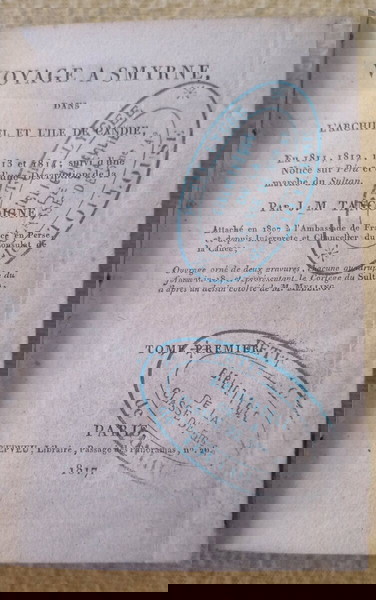 VOYAGE A SMYRNE,
DANS
L'ARCHIPEL ET L'ILE DE CANDIE,
En 1811, 1812, 1813 et 1814; suivi d'une
Notice sur Péra et d'une Description de la
Marche du Sultan.
PAR J. M. TANCOIGNE,
Attaché en 1807 à l'Ambassade de France en Perse
et depuis Interprète et Chancelier du
Consulat de
la Canée.
Ouvrage orné de deux gravures, chacune quadruple du
format in-18, et représentant le Cortège du Sultan
d'après un dessin colorié de M. MELLING.
TOME PREMIER,
DE LA
PARIS,
NEPVEU, Libraire, Passage des Panoramas, n°. 26.
1817.